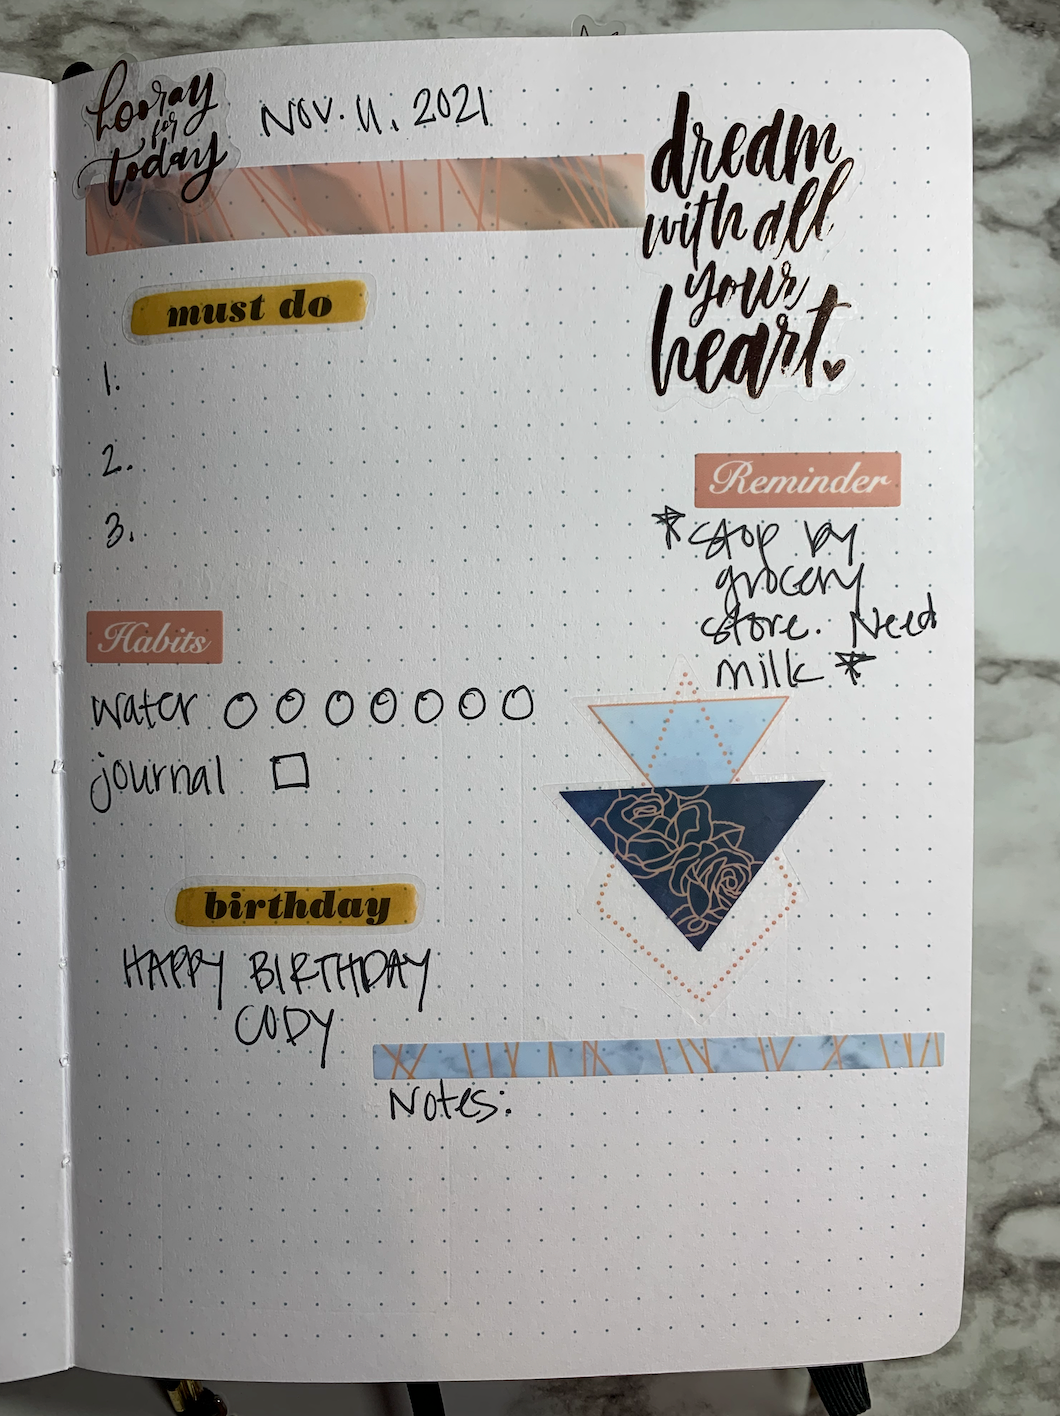 hooray
for
today
Nov. 11. 2021
dream
with all
your
heart.
must do
1.
2.
3.
Reminder
*stop by
grocery
store. Need
milk *
Habits
water
journal
birthday
HAPPY BIRTHDAY
CODY
Notes: